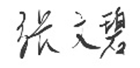 张文碧